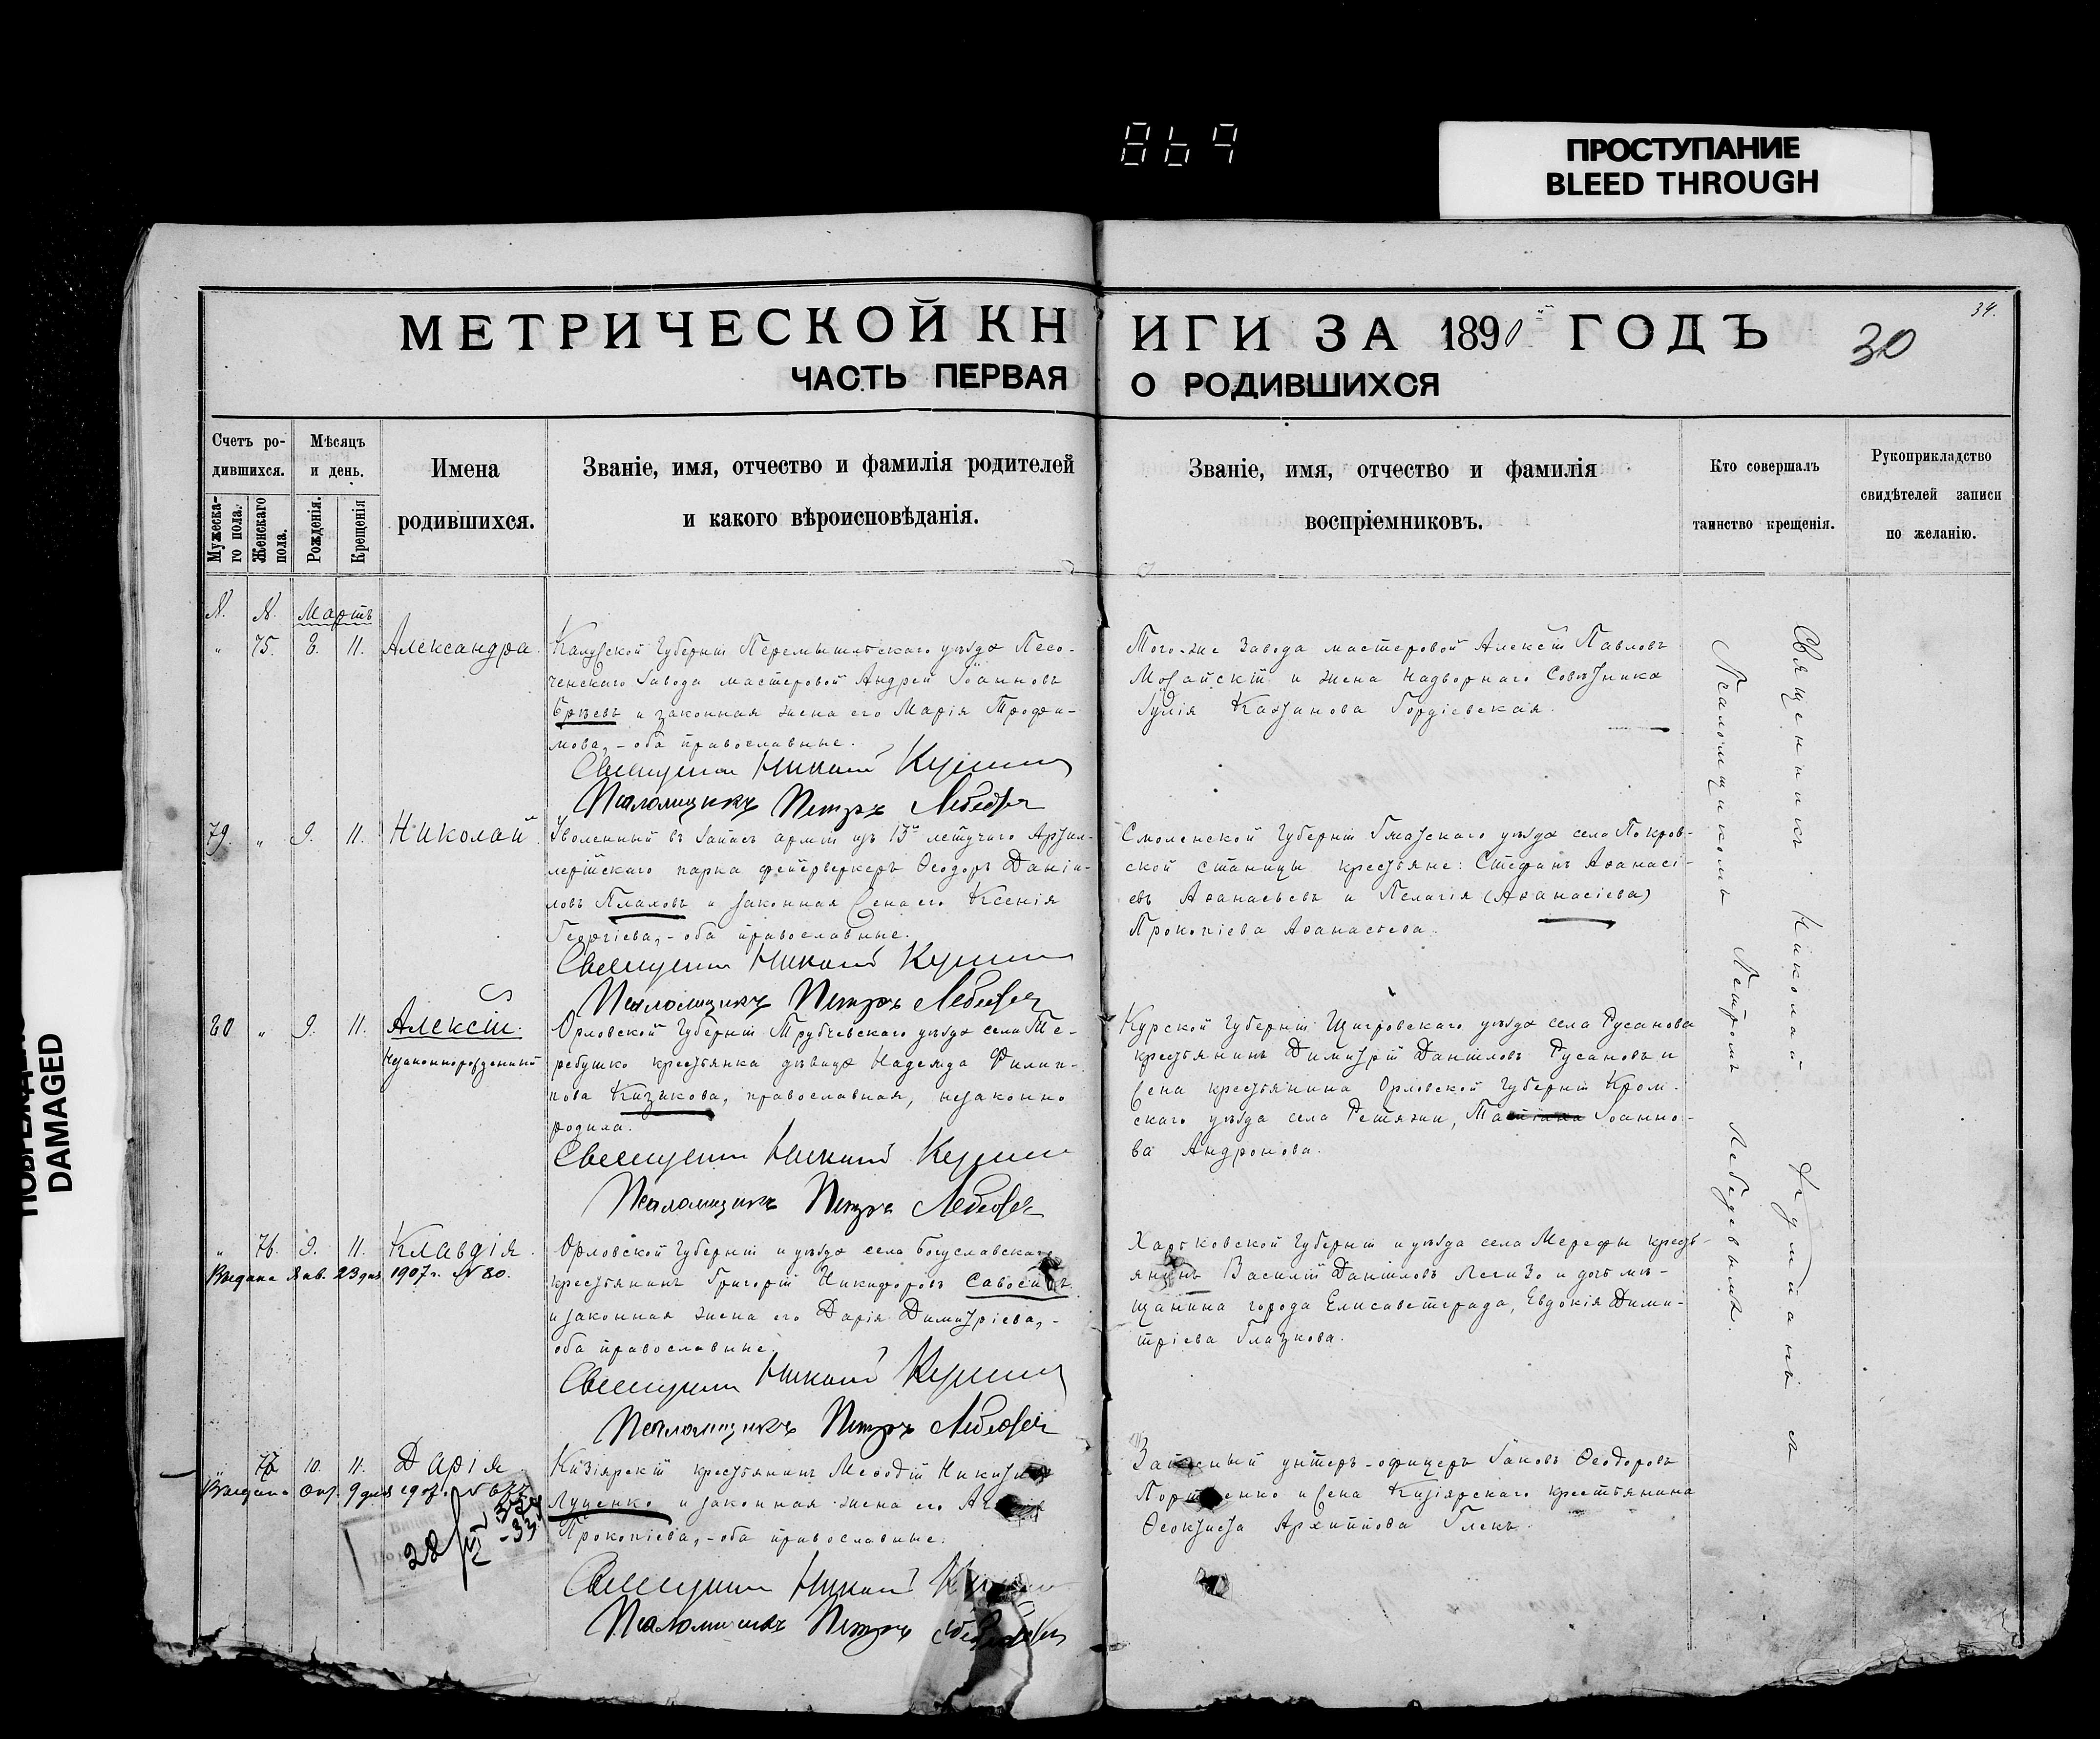 869
ПРОСТУПАНИЕ
BLEED THROUGH
DAMAGED
34.
МЕТРИЧЕСКОЙ КНИГИ ЗА 1890й ГОДЪ
30
ЧАСТЬ ПЕРВАЯ О РОДИВШИХСЯ
Счетъ ро-
дившихся.
Мужеска-
го пола.
Женскаго
пола.
Мѣсяцъ
и день.
Рожденія.
Крещенія
Имена
родившихся.
Званіе, имя, отчество и фамилія родителей
и какого вѣроисповѣданія.
Званіе, имя, отчество и фамилія
воспріемниковъ.
Кто совершалъ
таинство крещенія.
Рукоприкладство
свидѣтелей записи
по желанію.
N. N. Мартъ
" 75. 8. 11. Александра.
Калужской Губерніи Перемышльскаго уѣзда Песо-
ченскаго Завода мастеровой Андрей Іоанновъ
и законная жена его Марія Трофи-
мова, - оба православные.
Священникъ Николай
Псаломщикъ Петръ Лебедевъ
Того-же Завода мастеровой Алексій Павловъ
Можайскій и жена Надворнаго Совѣтника
Юлія Гордіевская.
79. " 9. 11. Николай
Уволенный въ Запасъ арміи изъ 15го летучаго Артил-
лерійскаго парка фейерверкеръ Ѳеодоръ Даніи-
ловъ Плаховъ и законная жена его Ксенія
Георгіева, - оба православные.
Священникъ Николай
Псаломщикъ Петръ Лебедевъ
Смоленской Губерніи Гжатскаго уѣзда села Покров-
ской станицы крестьяне: Стефанъ Аѳанасі-
евъ Аѳанасьевъ и Пелагія (Аѳанасіева)
Прокопіева Аѳанасьева.
80 " 9. 11. Алексій.
Незаконнорожденный
Орловской Губерніи Трубчевскаго уѣзда села Те-
ребушко крестьянка дѣвица Надежда Филип-
пова Казакова, православная, незаконно
родила.
Священникъ Николай
Псаломщикъ Петръ Лебедевъ
Курской Губерніи Щигровскаго уѣзда села Русанова
крестьянинъ Димитрій Даніиловъ Русановъ и
жена крестьянина Орловской Губерніи Кром-
скаго уѣзда села Ретяжи, Іоанно-
ва Андронова.
" 76. 9. 11. Клавдія.
Выдана Янв. 23 дня 1907 г. № 80.
Орловской Губерніи и уѣзда села Богуславскаго
крестьянинъ Григорій Никифоровъ
и законная жена его Дарія Димитріева, -
оба православные.
Священникъ Николай
Псаломщикъ Петръ Лебедевъ
Харьковской Губерніи и уѣзда села Мерефы кресть-
янинъ Василій Даніиловъ и дочь мѣ-
щанина города Елисаветграда, Евдокія Дими-
тріева Глазкова.
" 77 10. 11. Дарія
Выдана 9 дня
28
Кизіярскій крестьянинъ Меѳодій
Луценко и законная жена его
Прокопіева, - оба православные.
Священникъ Николай
Псаломщикъ Петръ
Запасный унтеръ-офицеръ Іаковъ Ѳеодоровъ
и жена Кизіярскаго крестьянина
Ѳеоктиста Архиппова
Священникъ Николай
Псаломщикомъ Петромъ Лебедевымъ.